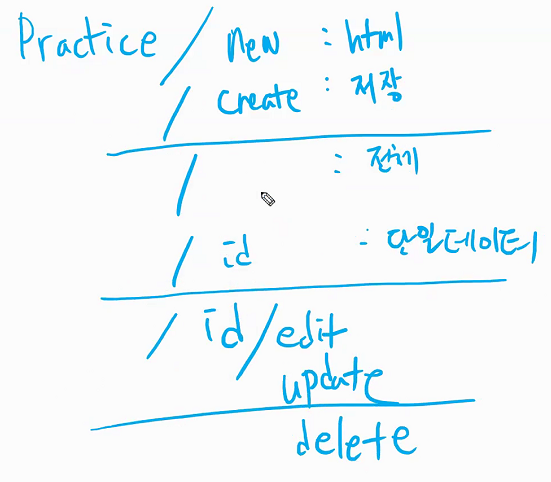 Practice / new : html
/ create : 저장
/ : 전체
/ id : 단일데이터
/ id / edit
update
delete